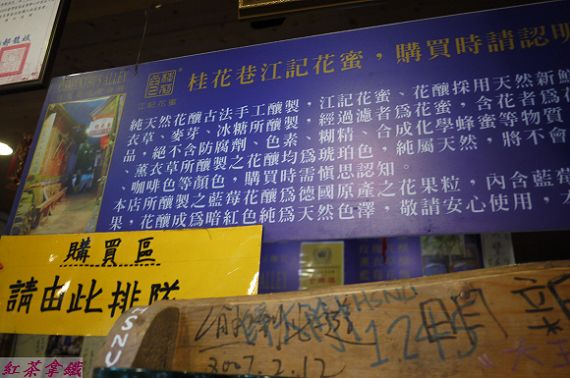 桂花巷江記花蜜，購買時請認明
江記花蜜
純天然花釀古法手工釀製，江記花蜜、花釀採用天然新鮮
衣草、麥芽、冰糖所釀製，經過濾者為花蜜，含花者為花
品，絕不含防腐劑、色素、糊精、合成化學蜂蜜等物質
、薰衣草所釀製之花釀均為琥珀色，純屬天然，將不會
、咖啡色等顏色，購買時需慎思認知。
本店所釀製之藍莓花釀為德國原產之花果粒，內含藍莓
果，花釀成為暗紅色純為天然色澤，敬請安心使用，本
購買區
請由此排隊
HSNU
2007.2.12
HSNU
1245
紅茶拿鐵